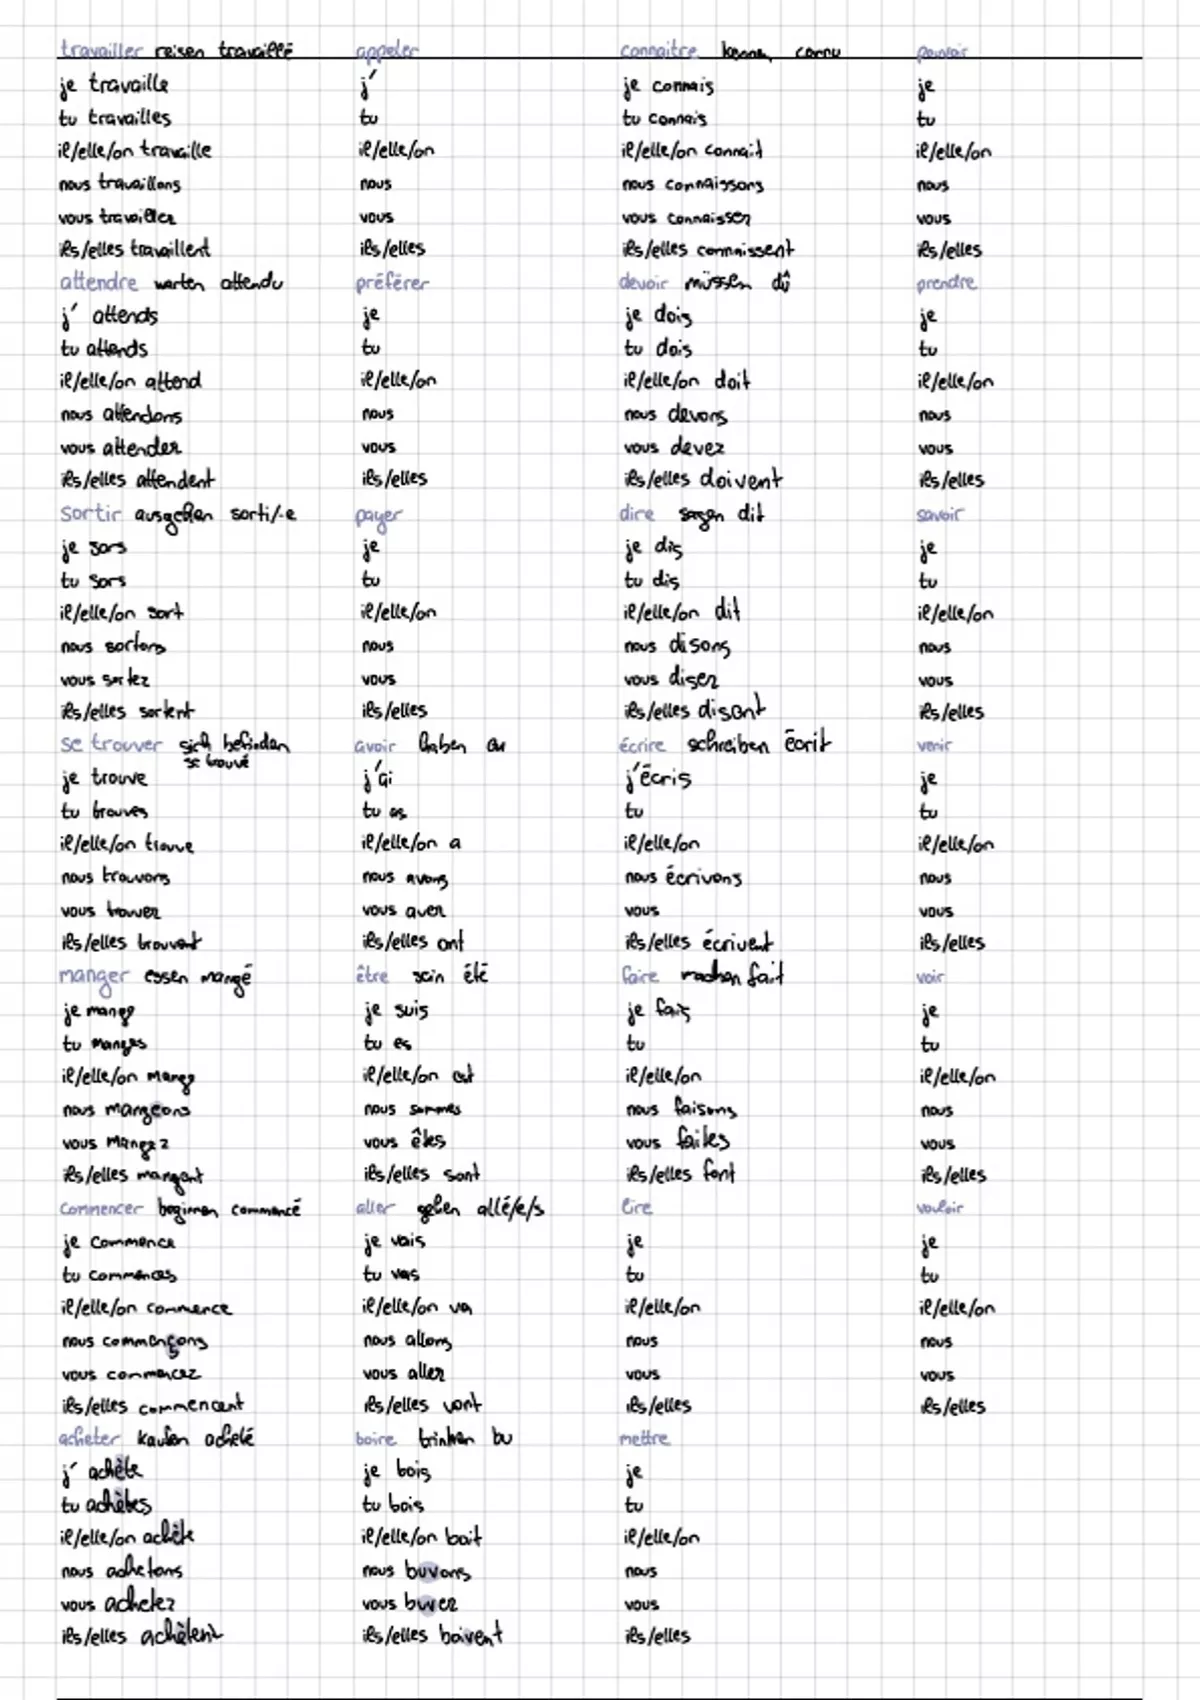 travailler reisen travaillé
je travaille
tu travailles
il/elle/on travaille
nous travaillons
vous travaillez
ils/elles travaillent
attendre warten attendu
j' attends
tu attends
il/elle/on attend
nous attendons
vous attendez
ils/elles attendent
sortir ausgehen sorti/-e
je sors
tu sors
il/elle/on sort
nous sortons
vous sortez
ils/elles sortent
se trouver sich befinden
se trouvé
je trouve
tu trouves
il/elle/on trouve
nous trouvons
vous trouvez
ils/elles trouvent
manger essen mangé
je mange
tu manges
il/elle/on mange
nous mangeons
vous mangez
ils/elles mangent
commencer beginnen commencé
je commence
tu commences
il/elle/on commence
nous commençons
vous commencez
ils/elles commencent
acheter kaufen acheté
j' achète
tu achètes
il/elle/on achète
nous achetons
vous achetez
ils/elles achètent
appeler
j'
tu
il/elle/on
nous
vous
ils/elles
préférer
je
tu
il/elle/on
nous
vous
ils/elles
payer
je
tu
il/elle/on
nous
vous
ils/elles
avoir haben eu
j'ai
tu as
il/elle/on a
nous avons
vous avez
ils/elles ont
être sein été
je suis
tu es
il/elle/on est
nous sommes
vous êtes
ils/elles sont
aller gehen allé/e/s
je vais
tu vas
il/elle/on va
nous allons
vous allez
ils/elles vont
boire trinken bu
je bois
tu bois
il/elle/on boit
nous buvons
vous buvez
ils/elles boivent
connaitre connu
je connais
tu connais
il/elle/on connait
nous connaissons
vous connaissez
ils/elles connaissent
devoir müssen dû
je dois
tu dois
il/elle/on doit
nous devons
vous devez
ils/elles doivent
dire sagen dit
je dis
tu dis
il/elle/on dit
nous disons
vous disez
ils/elles disent
écrire schreiben écrit
j'écris
tu
il/elle/on
nous écrivons
vous
ils/elles écrivent
faire machen fait
je fais
tu
il/elle/on
nous faisons
vous faites
ils/elles font
lire
je
tu
il/elle/on
nous
vous
ils/elles
mettre
je
tu
il/elle/on
nous
vous
ils/elles
pouvoir
je
tu
il/elle/on
nous
vous
ils/elles
prendre
je
tu
il/elle/on
nous
vous
ils/elles
savoir
je
tu
il/elle/on
nous
vous
ils/elles
venir
je
tu
il/elle/on
nous
vous
ils/elles
voir
je
tu
il/elle/on
nous
vous
ils/elles
vouloir
je
tu
il/elle/on
nous
vous
ils/elles